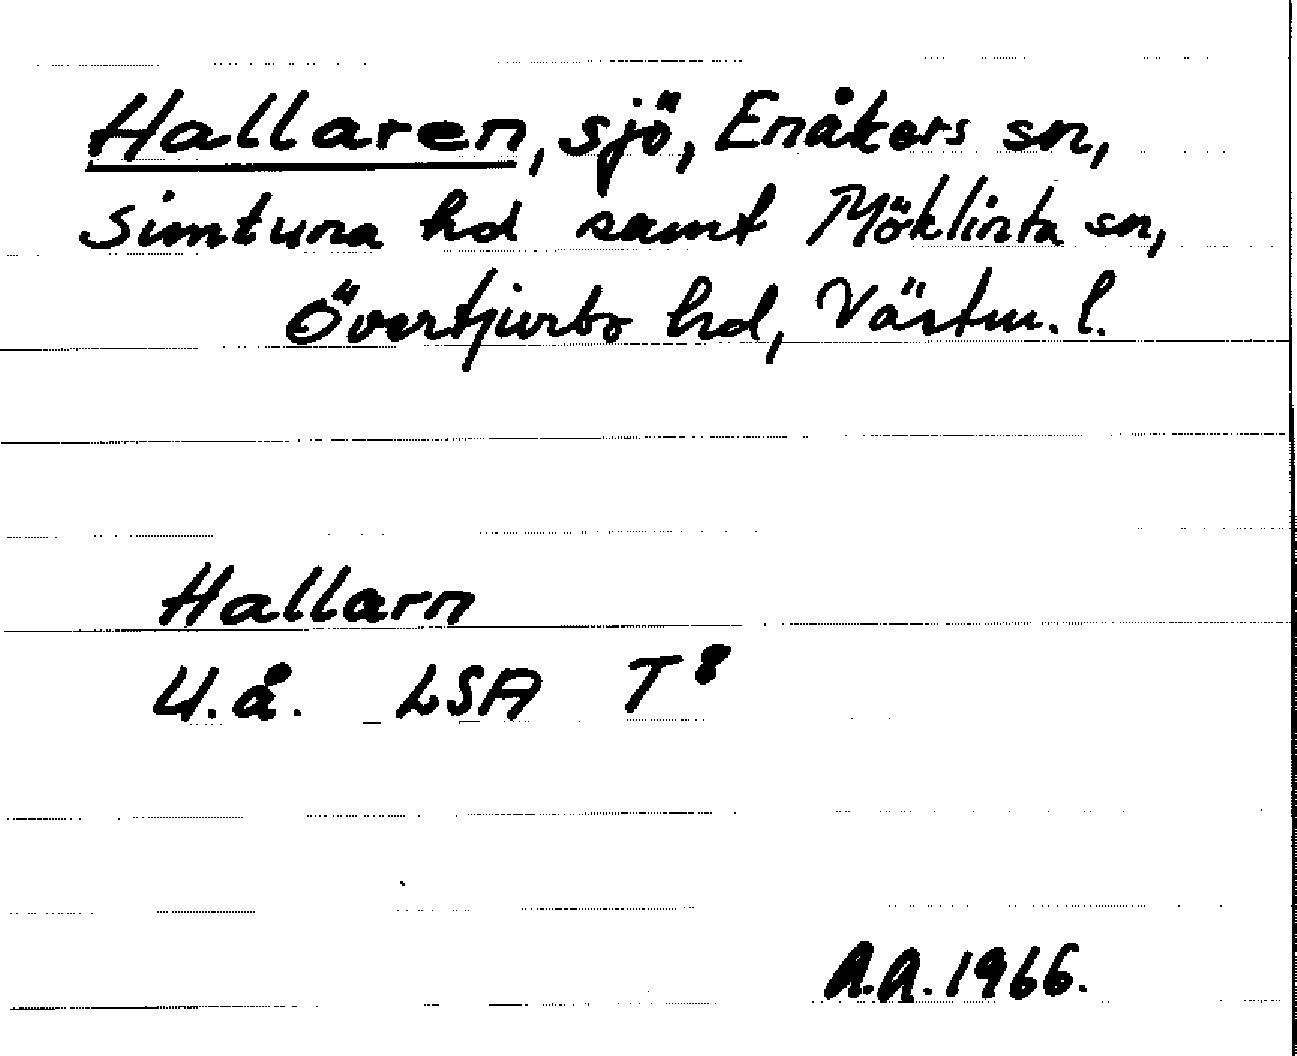 Hallaren, sjö, Enåkers sn,
Simtuna hd samt Möklinta sn,
Övertjurbo hd, Västm. l.
Hallarn
U.å. LSA T 8
A.A. 1966.